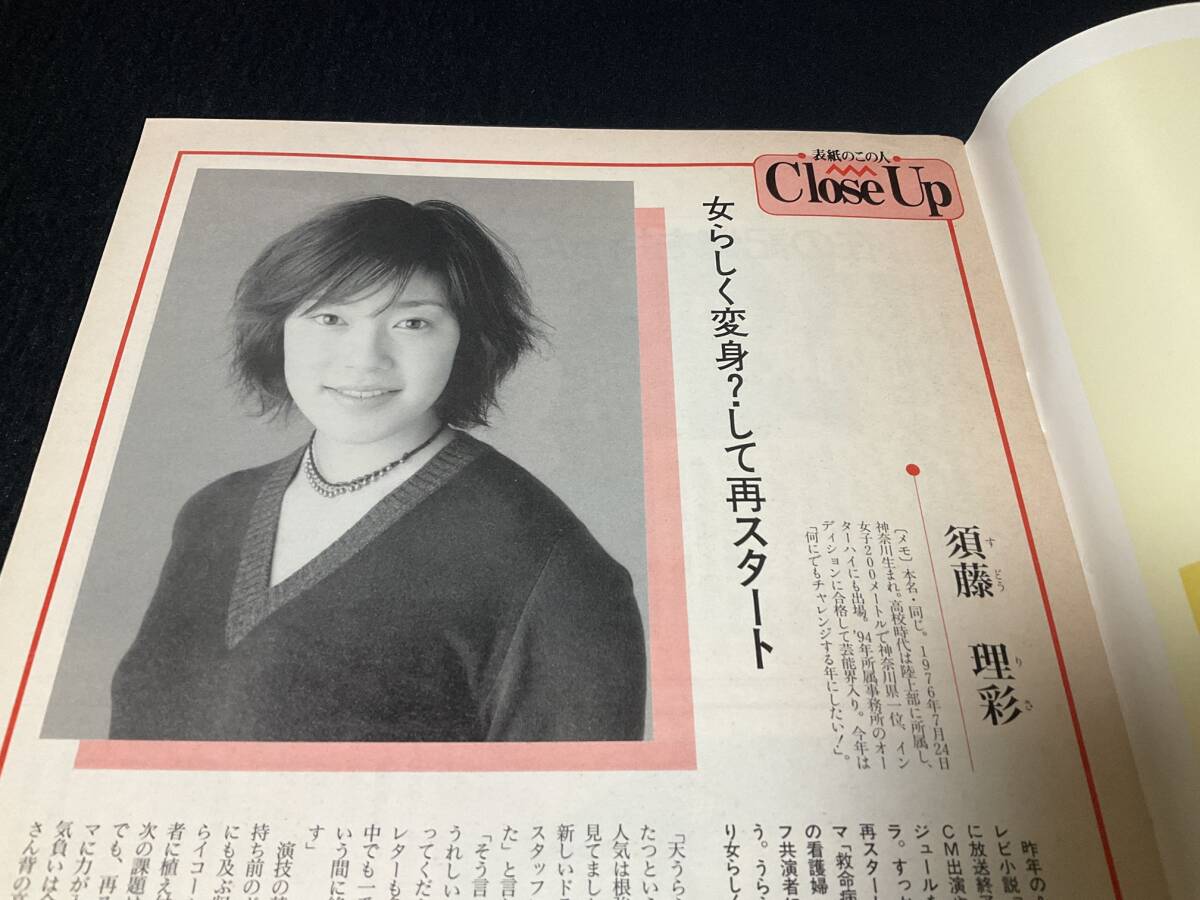 表紙のこの人
Close Up
女らしく変身?して再スタート
須藤 理彩
すどう りさ
〔メモ〕本名・同じ。1976年7月24日
神奈川生まれ。高校時代は陸上部に所属し、
女子200メートルで神奈川県一位、イン
ターハイにも出場。'94年所属事務所のオー
ディションに合格して芸能界入り。今年は
「何にでもチャレンジする年にしたい!」。
昨年の
レビ小説
に放送終了
CM出演や
ジュールを
ラ。すっか
再スタート
マ「救命病
の看護婦
フ共演者に
う。うら
り女らしく
「天うら
たつという
人気は根強
見てました
新しいド
スタッフ
た」と言
「そう言
うれしい
ってくだ
レターも
中でも一
いう間に
す」
演技の
持ち前の
にも及ぶ
らイコー
者に植え
次の課題
でも、再
マに力が
気負いは
さん背の高